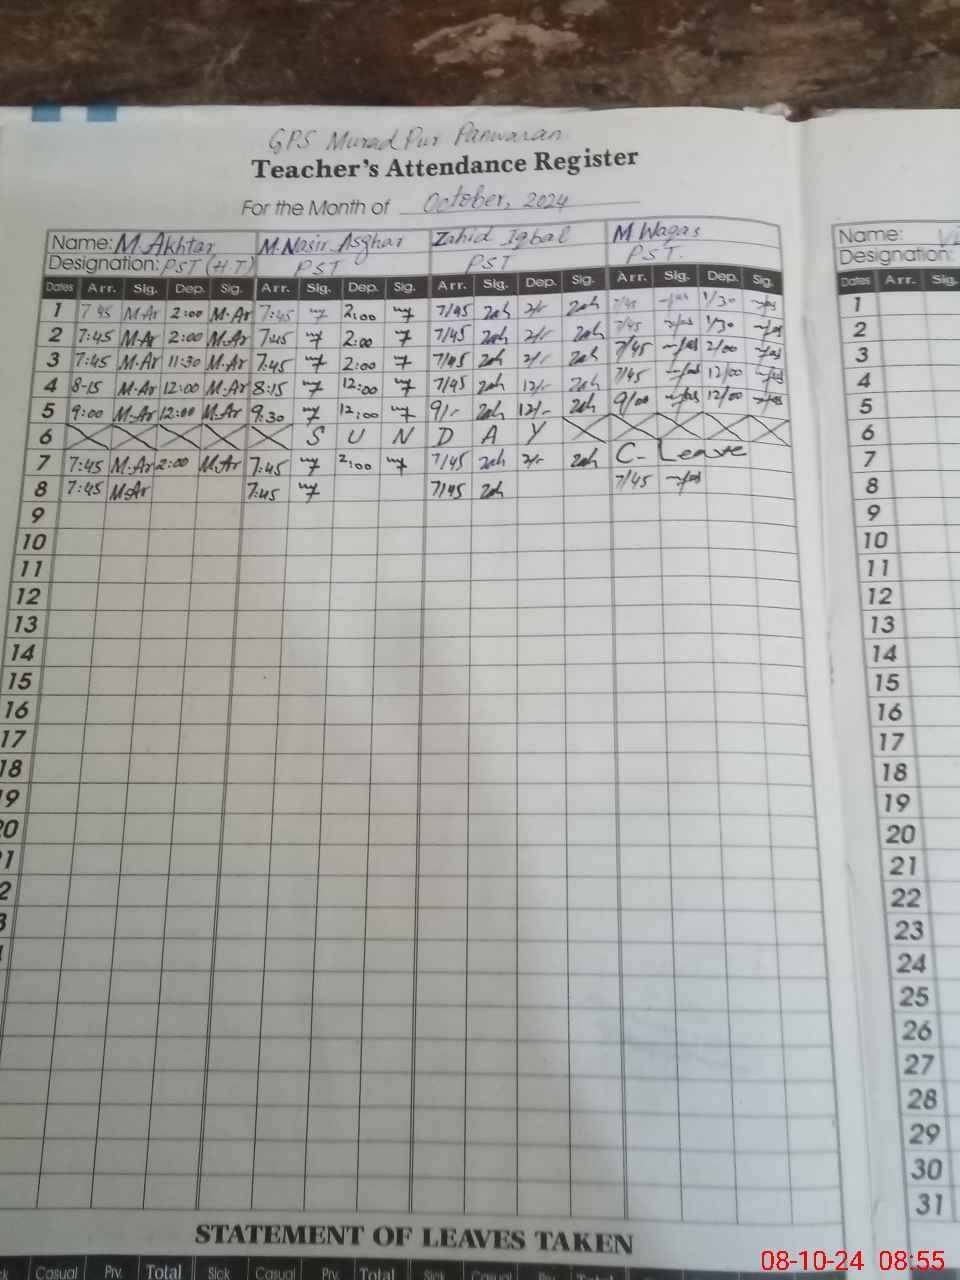 GPS Murad Pur Panwaran
Teacher's Attendance Register
For the Month of October, 2024
Name: M.Akhtar M.Nasir Asghar Zahid Iqbal M Waqas Name:
Designation: PST (H T) PST PST PST. Designation:
Dates Arr. Sig. Dep. Sig. Arr. Sig. Dep. Sig. Arr. Sig. Dep. Sig. Arr. Sig. Dep. Sig. Dates Arr. Sig.
1 7 45 M.Ar 2:00 M.Ar 7:45 2:00 7/45 2/- 7/45 1/30 1
2 7:45 M.Ar 2:00 M.Ar 7:45 2:00 7/45 2/- 7/45 1/30 2
3 7:45 M.Ar 11:30 M.Ar 7:45 2:00 7/45 2/- 7/45 2/00 3
4 8-15 M.Ar 12:00 M.Ar 8:15 12:00 7/45 12/- 7/45 12/00 4
5 9:00 M.Ar 12:00 M.Ar 9:30 12:00 9/- 12/- 9/00 12/00 5
6 S U N D A Y 6
7 7:45 M.Ar 2:00 M.Ar 7:45 2:00 7/45 2/- C- Leave 7
8 7:45 M.Ar 7:45 7/45 7/45 8
9 9
10 10
11 11
12 12
13 13
14 14
15 15
16 16
17 17
18 18
19 19
20 20
21
22
23
24
25
26
27
28
29
30
31
STATEMENT OF LEAVES TAKEN
Casual Prv. Total Sick Casual Prv. Total Sick Casual Prv.
08-10-24 08:55